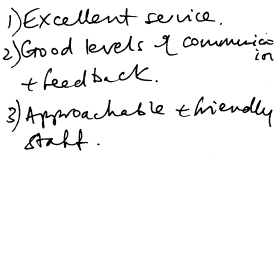 1) Excellent service.
2) Good levels of communication
+ feedback.
3) Approachable + friendly
staff.